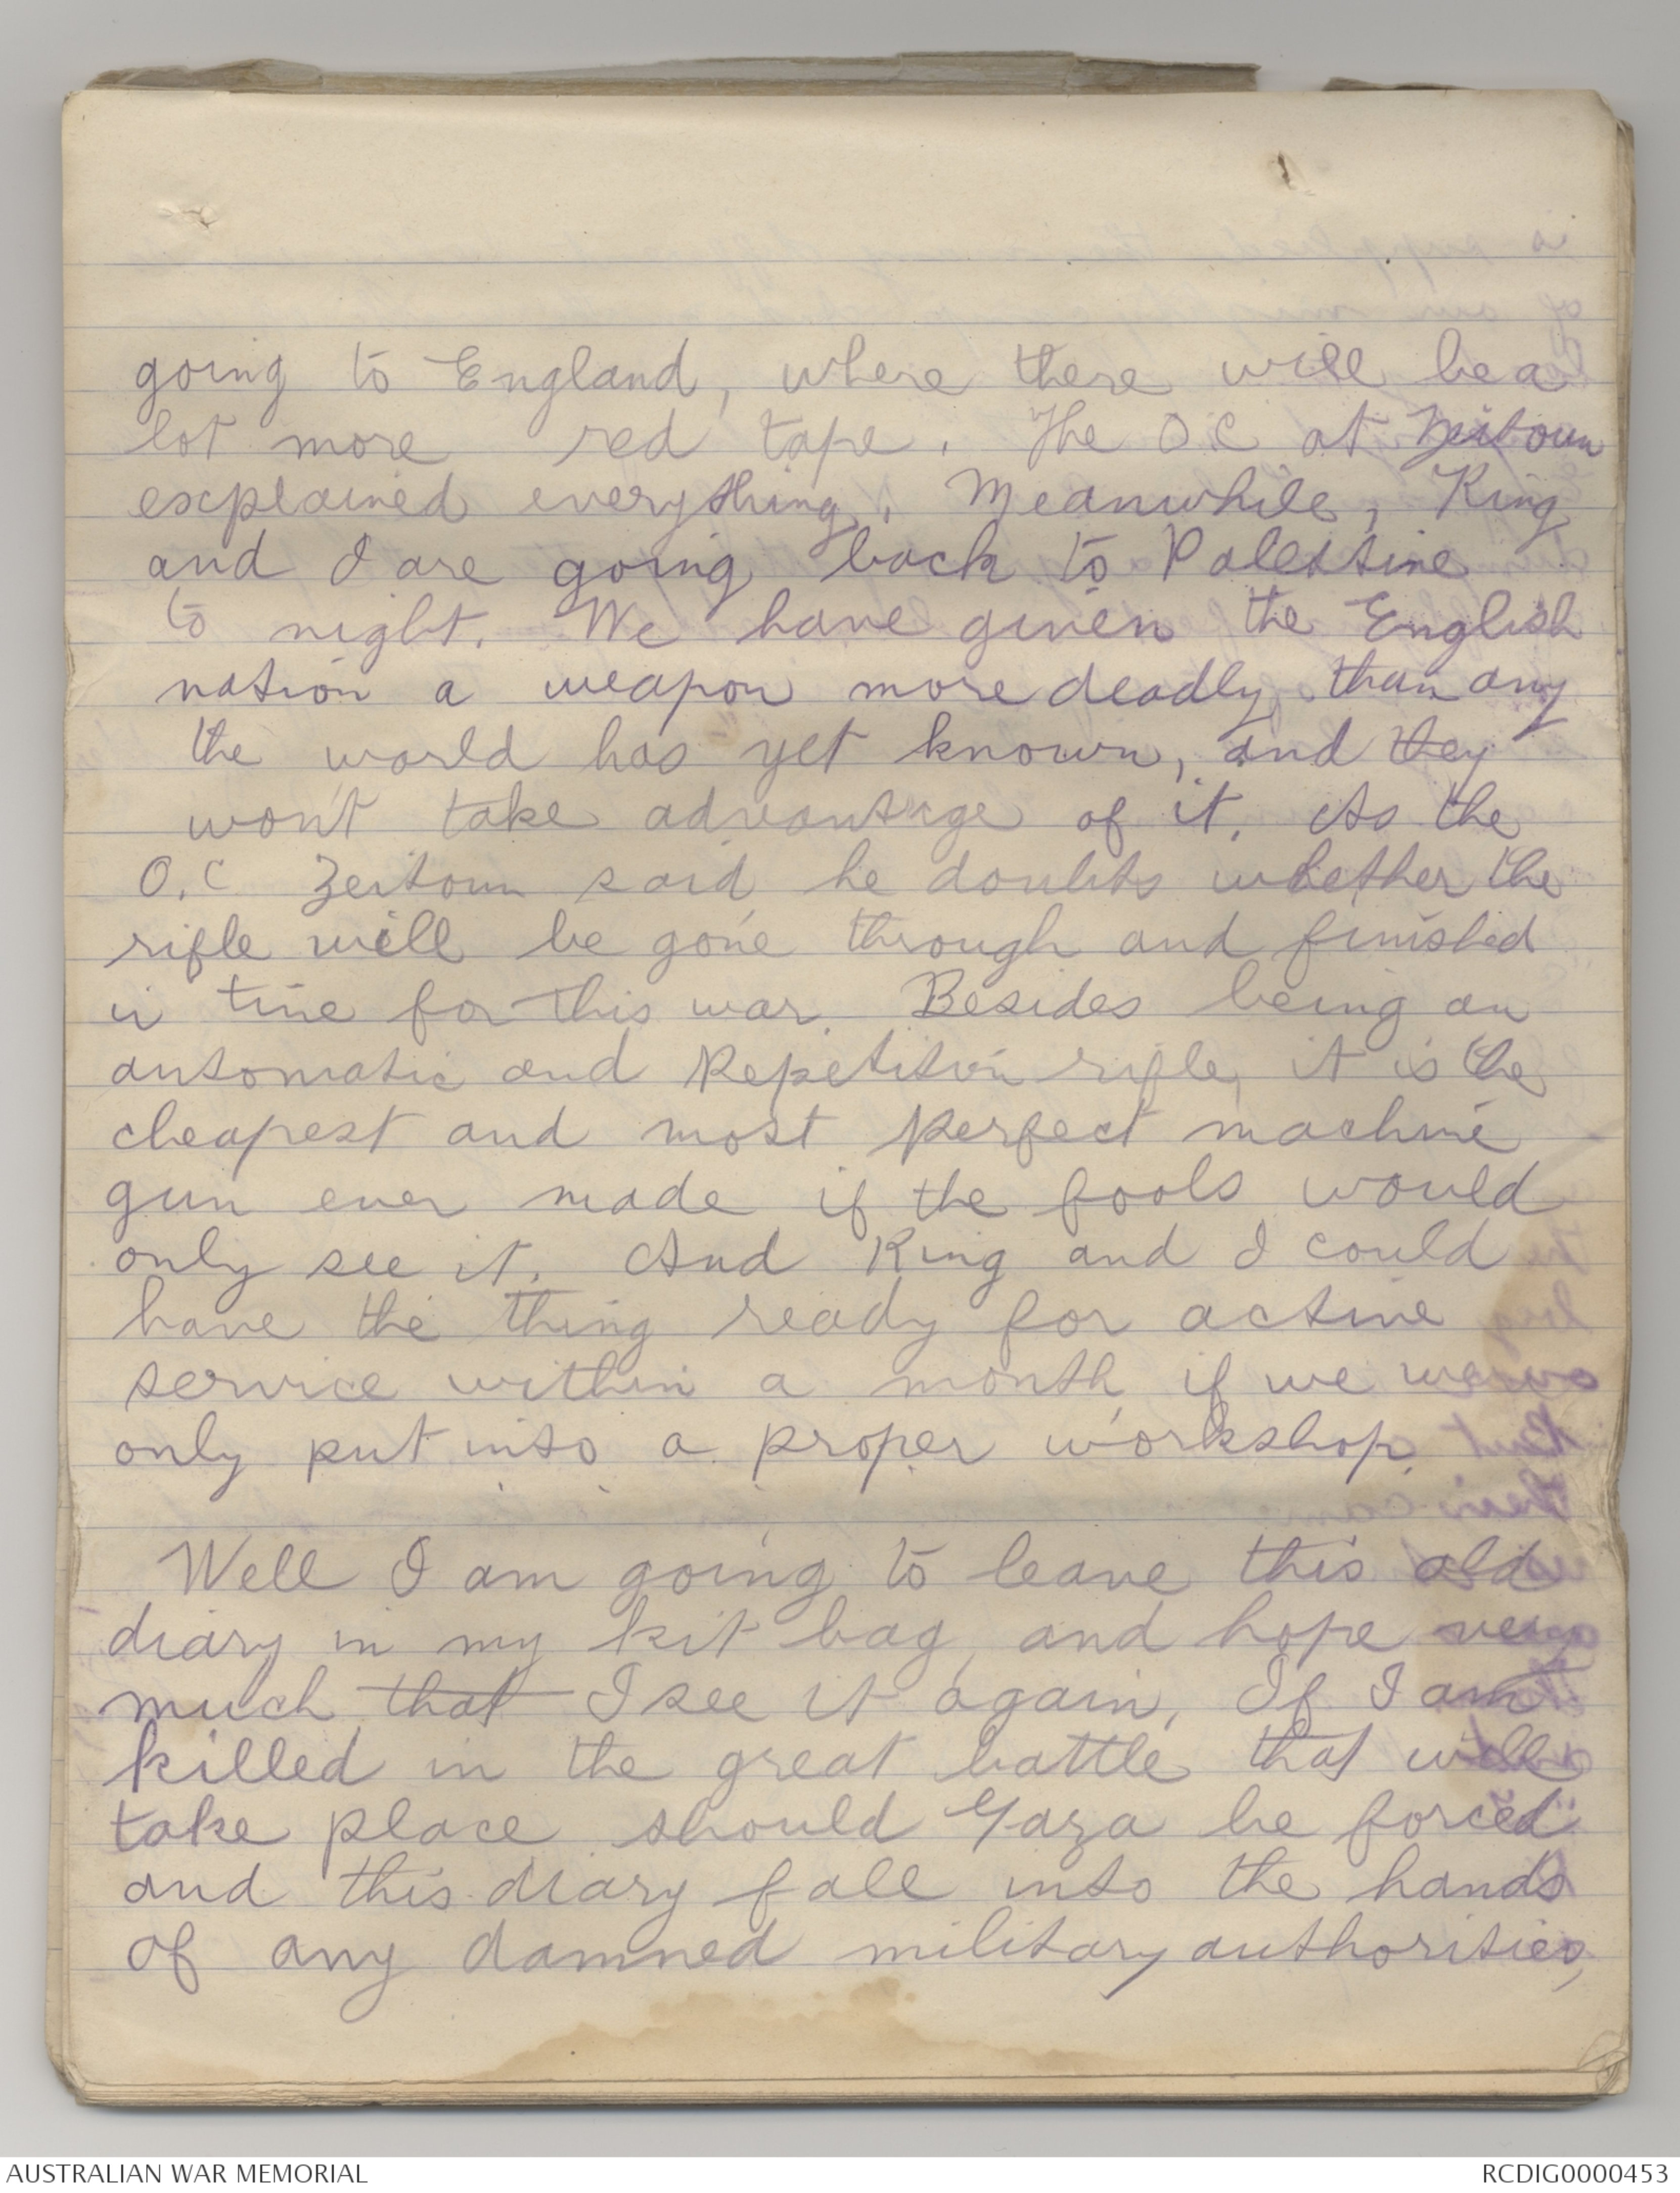 going to England, where there will be a
lot more red tape. The O.C at Zeitoun
explained everything. Meanwhile, King
and I are going back to Palestine
to night. We have given the English
nation a weapon more deadly than any
the world has yet known, and they
won't take advantage of it. As the
O.C Zeitoun said he doubts whether the
rifle will be gone through and finished
in time for this war. Besides being an
automatic and Repetition rifle, it is the
cheapest and most perfect machine
gun ever made if the fools would
only see it. And King and I could
have the thing ready for active
service within a month, if we were
only put into a proper workshop.
Well I am going to leave this old
diary in my kit bag, and hope very
much that I see it again. If I am
killed in the great battle that will
take place should Gaza be forced
and this diary fall into the hands
of any damned military authorities,
AUSTRALIAN WAR MEMORIAL
RCDIG0000453